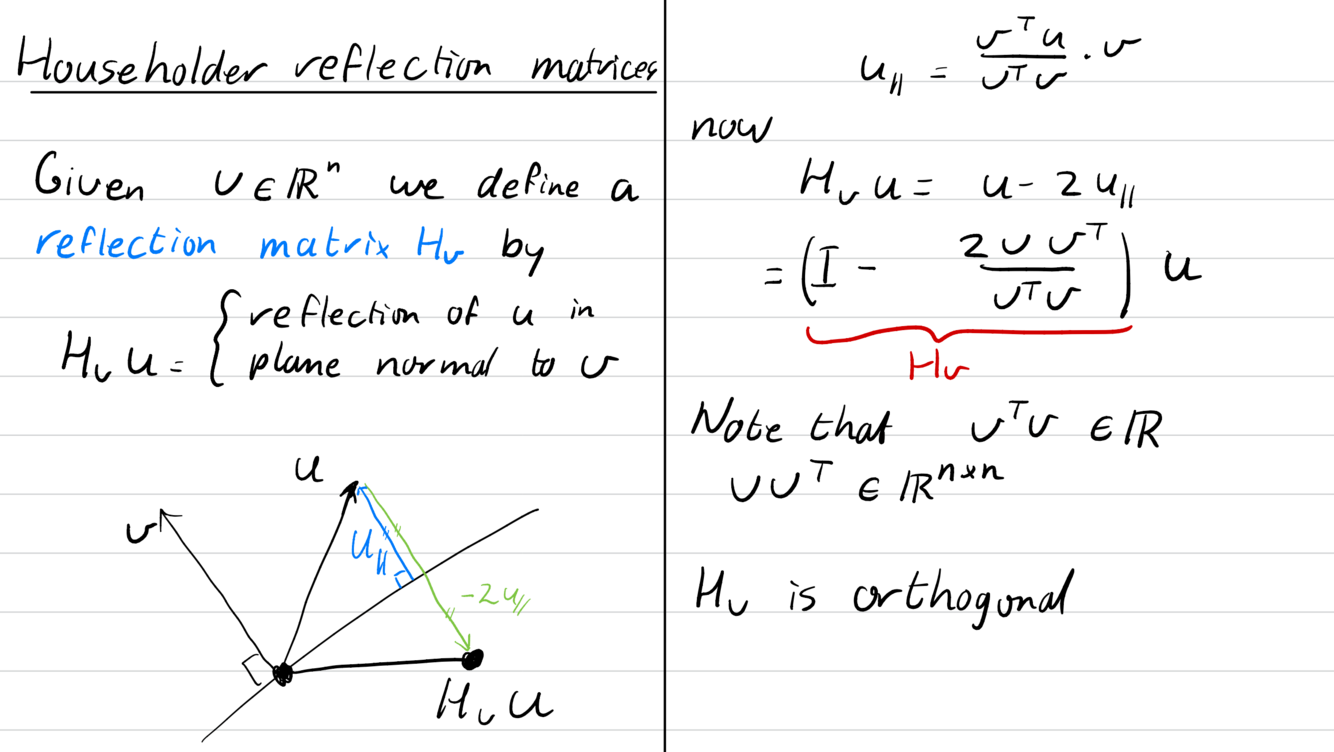 Householder reflection matrices
Given v ∈ ℝⁿ we define a
reflection matrix Hᵥ by
Hᵥ u = { reflection of u in
plane normal to v
u
v
u∥
-2u∥
Hᵥ u
u∥ = vᵀu / vᵀv · v
now
Hᵥ u = u - 2 u∥
= (I - 2 v vᵀ / vᵀv) u
Hᵥ
Note that vᵀv ∈ ℝ
vvᵀ ∈ ℝⁿˣⁿ
Hᵥ is orthogonal